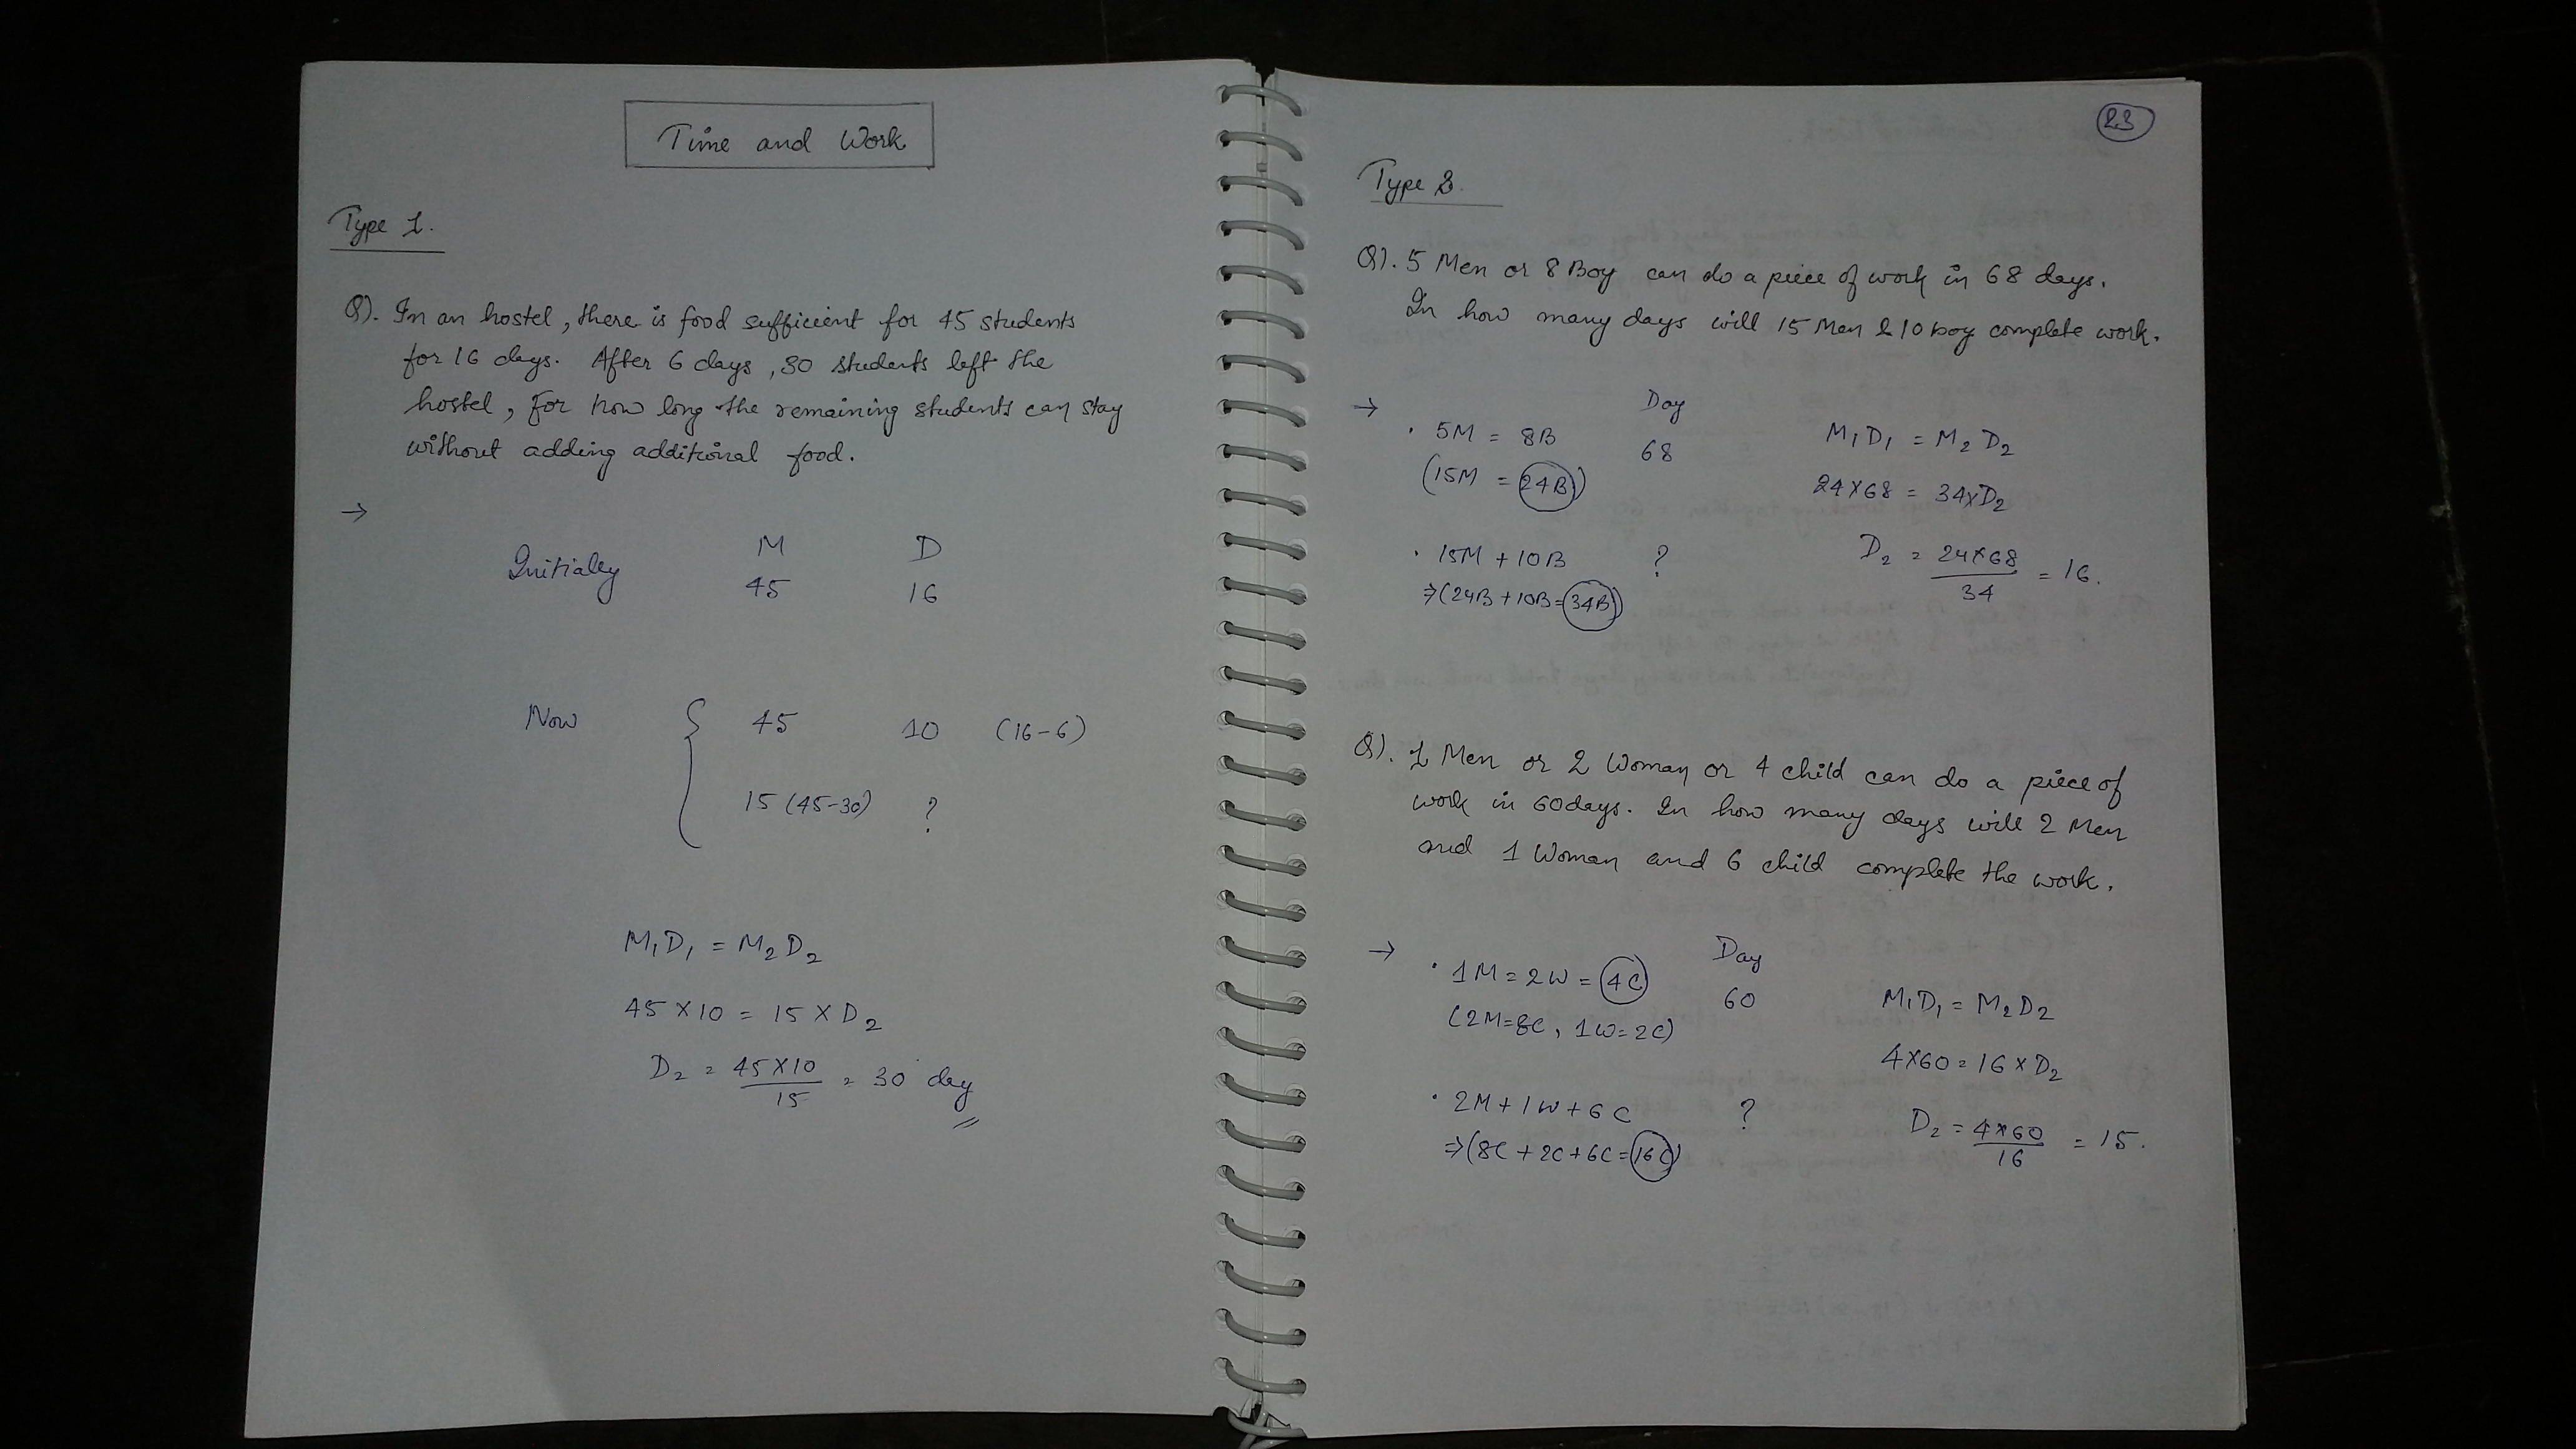 Time and Work
Type 1.
Q). In an hostel, there is food sufficient for 45 students
for 16 days. After 6 days, 30 students left the
hostel, for how long the remaining students can stay
without adding additional food.
→
M D
Initialey 45 16
Now { 45 10 (16-6)
15 (45-30) ?
M₁D₁ = M₂D₂
45 × 10 = 15 × D₂
D₂ = 45×10/15 = 30 day
23
Type 2.
Q). 5 Men or 8 Boy can do a piece of work in 68 days.
In how many days will 15 Men & 10 boy complete work.
→ Day
· 5M = 8B 68
(15M = 24B)
· 15M + 10B ?
⇒ (24B + 10B = 34B)
M₁D₁ = M₂D₂
24×68 = 34×D₂
D₂ = 24×68/34 = 16.
Q). 1 Men or 2 Woman or 4 child can do a piece of
work in 60 days. In how many days will 2 Men
and 1 Woman and 6 child complete the work.
→ Day
· 1M = 2W = 4C 60
(2M=8C, 1W=2C)
· 2M + 1W + 6C ?
⇒ (8C + 2C + 6C = 16C)
M₁D₁ = M₂D₂
4×60 = 16 × D₂
D₂ = 4×60/16 = 15.